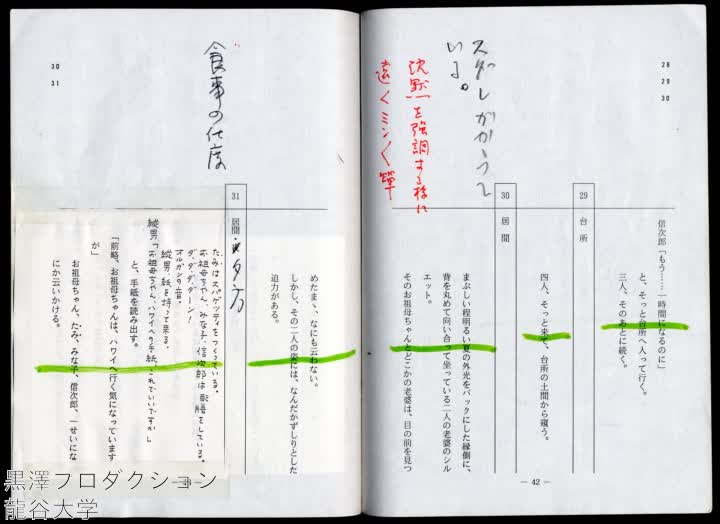 28
29
30
信次郎「もう……一時間になるのに」
と、そっと台所へ入って行く。
三人、そのあとに続く。
29 台所
四人、そっと来て、台所の土間から窺う。
30 居間
まぶしい程明るい夏の外光をバックにした縁側に、
背を丸めて向い合って坐っている二人の老婆のシル
エット。
そのお祖母ちゃんとどこかの老婆は、目の前を見つ
いる。
沈黙を強調する様に
遠くミンミン蟬
— 42 —
30
31
食事の仕度
めたまゝ、なにも云わない。
しかし、その二人の姿には、なんだかずしりとした
迫力がある。
31 居間・夕方
たみはスパゲッティをつくっている。
お祖母ちゃん、みな子、信次郎は配膳をしている。
ダ、ダ、ダ、ダーン!
オルガンの音。
縦男、紙を持って来る。
縦男「お祖母ちゃん、ハワイへの手紙、これでいいですか」
と、手紙を読み出す。
「前略、お祖母ちゃんは、ハワイへ行く気になっています
が」
お祖母ちゃん、たみ、みな子、信次郎、一せいにな
にか云いかける。
黒澤プロダクション
龍谷大学